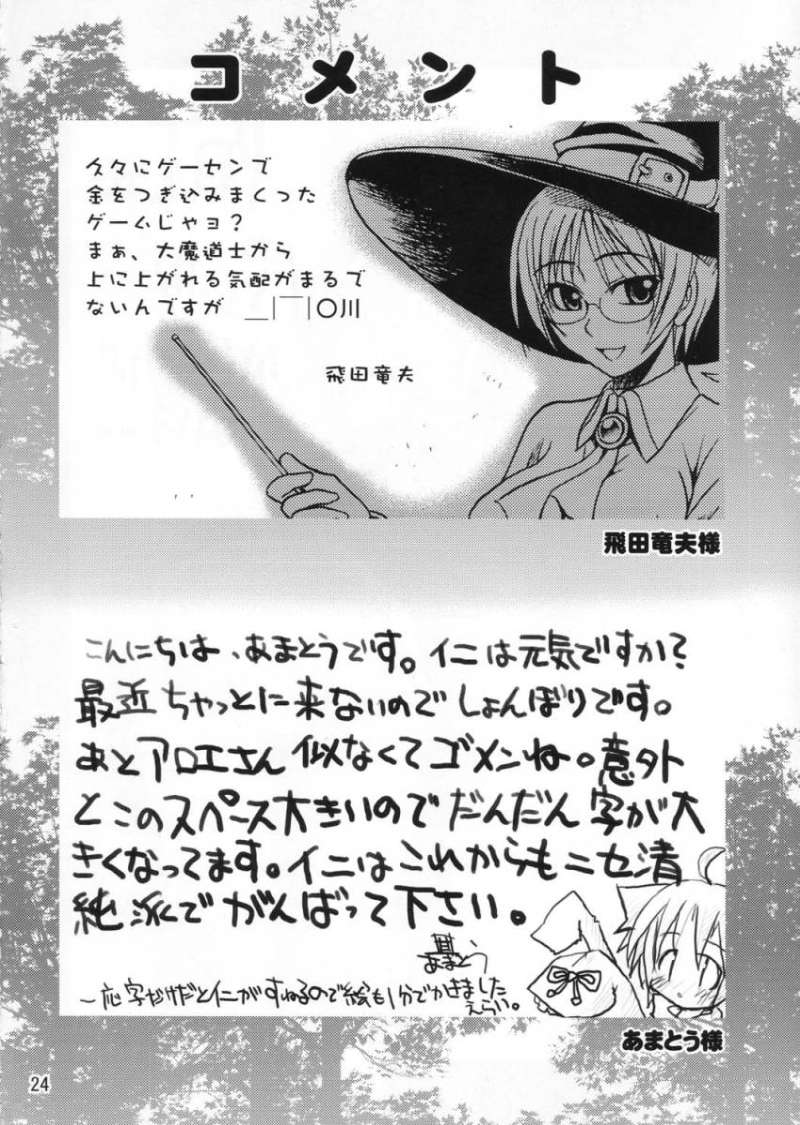 コメント
久々にゲーセンで
金をつぎ込みまくった
ゲームじゃヨ?
まぁ、大魔道士から
上に上がれる気配がまるで
ないんですが ＿|￣|○川
飛田竜夫
飛田竜夫様
こんにちは、あまとうです。イニは元気ですか?
最近ちゃっとに来ないのでしょんぼりです。
あとアロエさん似なくてゴメンね。意外
とこのスペース大きいのでだんだん字が大
きくなってます。イニはこれからもニセ清
純派でがんばって下さい。
あまとう
〜応字だけだとイニがすねるので絵も1分でかきました
えらい。
あまとう様
24